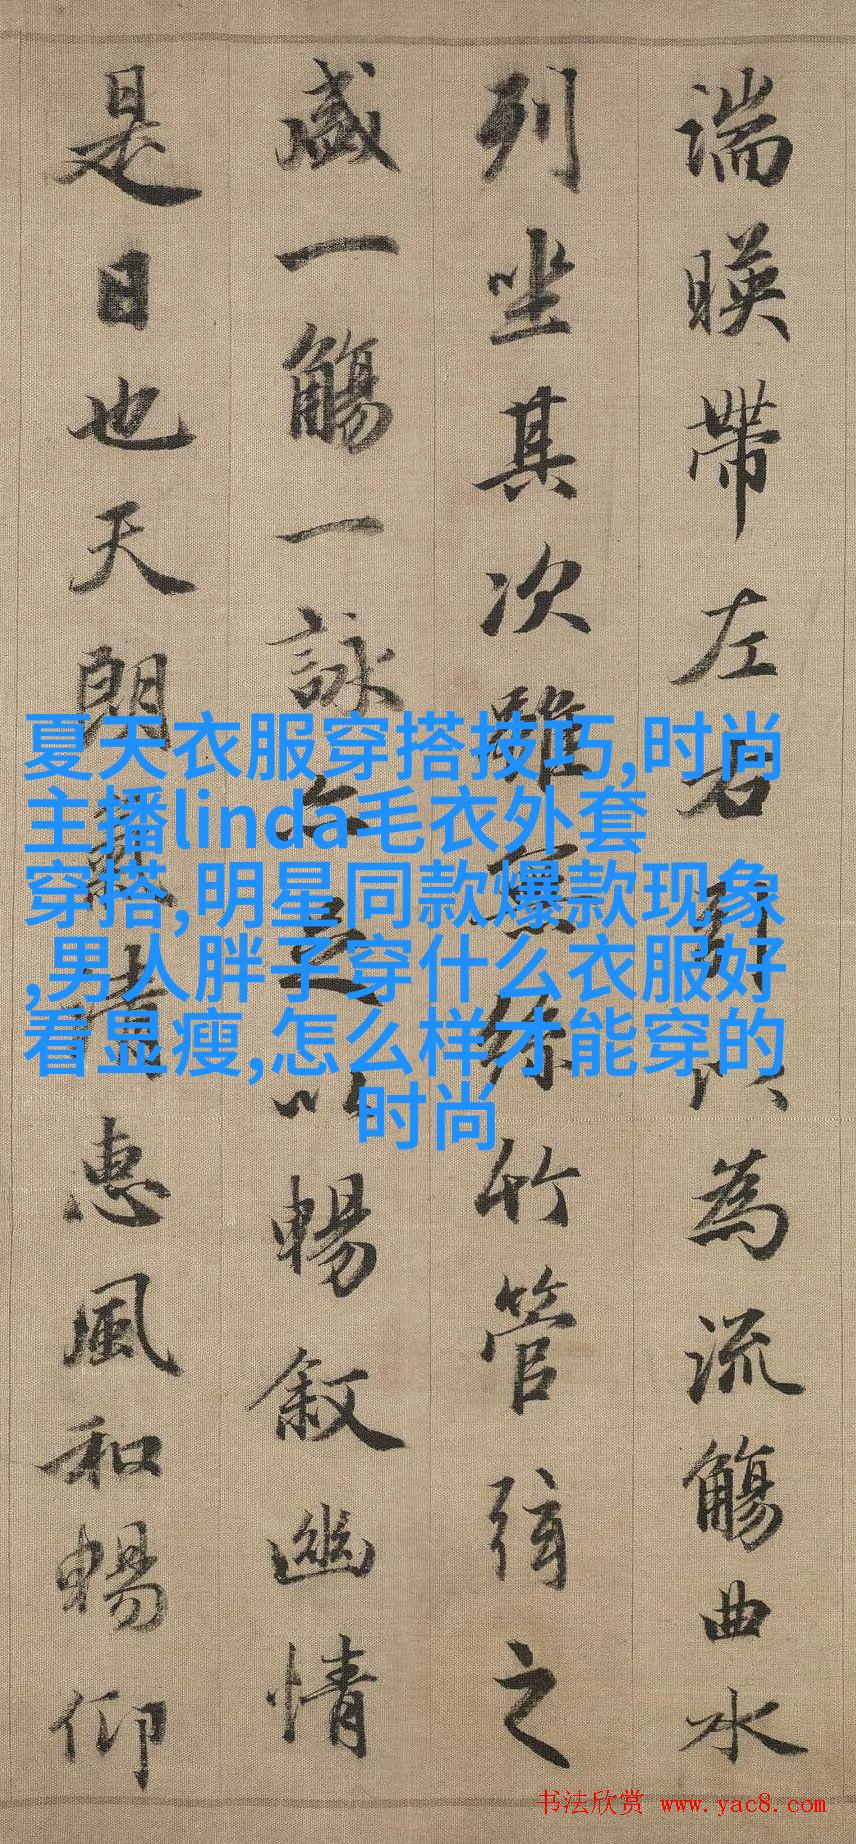 湍暎帶左右引以為流觴曲水
列坐其次雖無絲竹管弦之
盛一觴一詠亦足以暢叙幽情
是日也天朗氣清惠風和暢仰
夏天衣服穿搭技巧,时尚
主播linda毛衣外套
穿搭,明星同款爆款现象
,男人胖子穿什么衣服好
看显瘦,怎么样才能穿的
时尚
书法欣赏 www.yac8.com